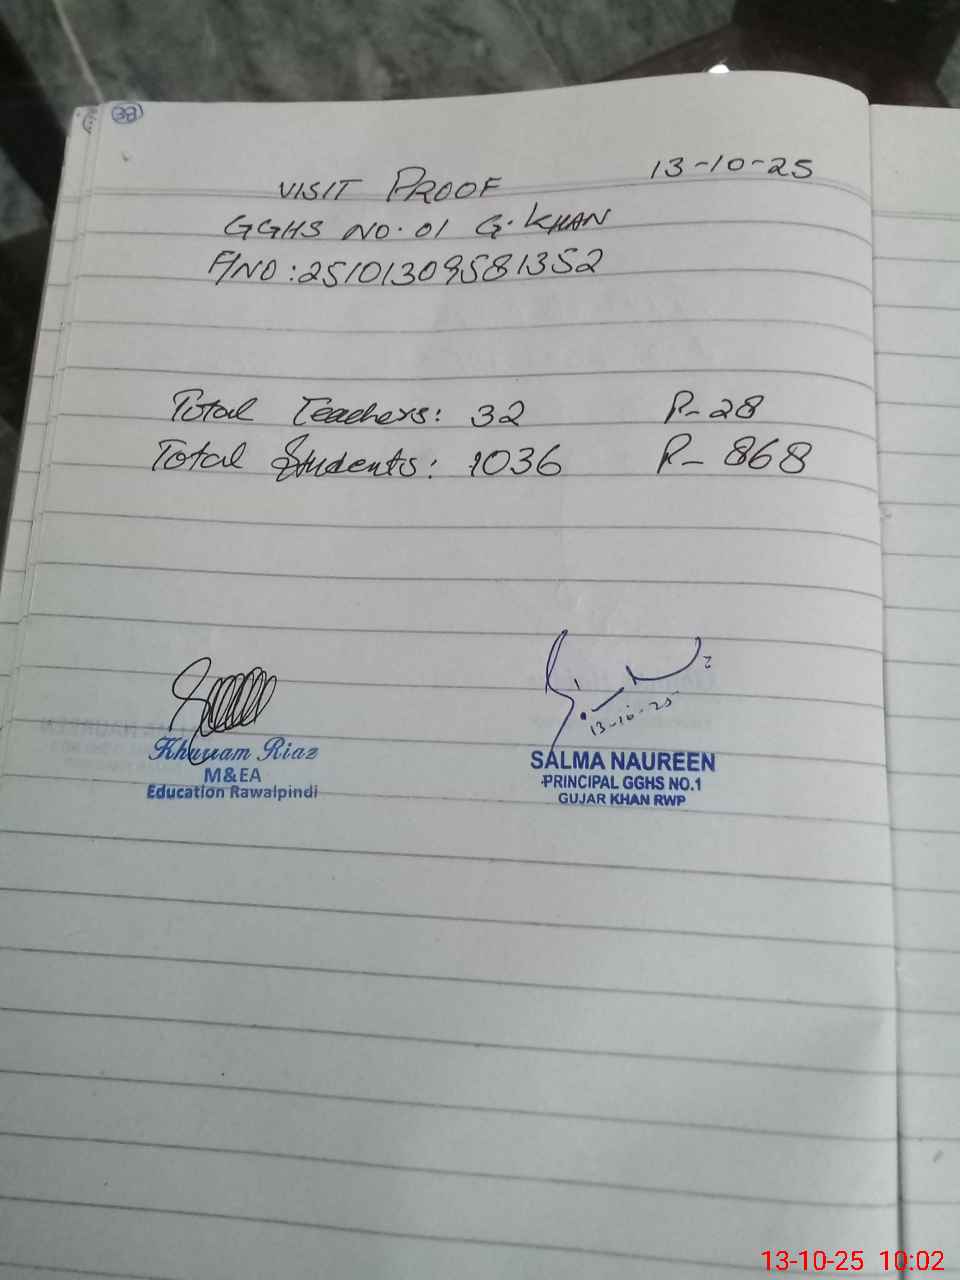 38
VISIT PROOF 13-10-25
GGHS NO.01 G.KHAN
F/NO:2510130958 1352
Total Teachers: 32 P-28
Total Students: 1036 P-868
13-10-25
Khurram Riaz
M&EA
Education Rawalpindi
SALMA NAUREEN
PRINCIPAL GGHS NO.1
GUJAR KHAN RWP
13-10-25 10:02